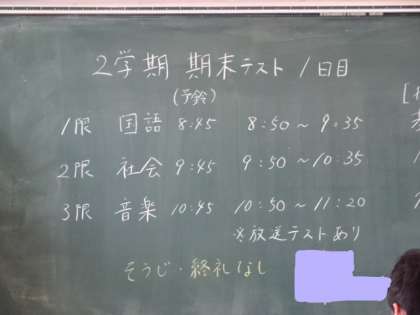 2学期 期末テスト 1日目
(予鈴)
1限 国語 8:45 8:50~9:35
2限 社会 9:45 9:50~10:35
3限 音楽 10:45 10:50~11:20
※放送テストあり
そうじ・終礼なし